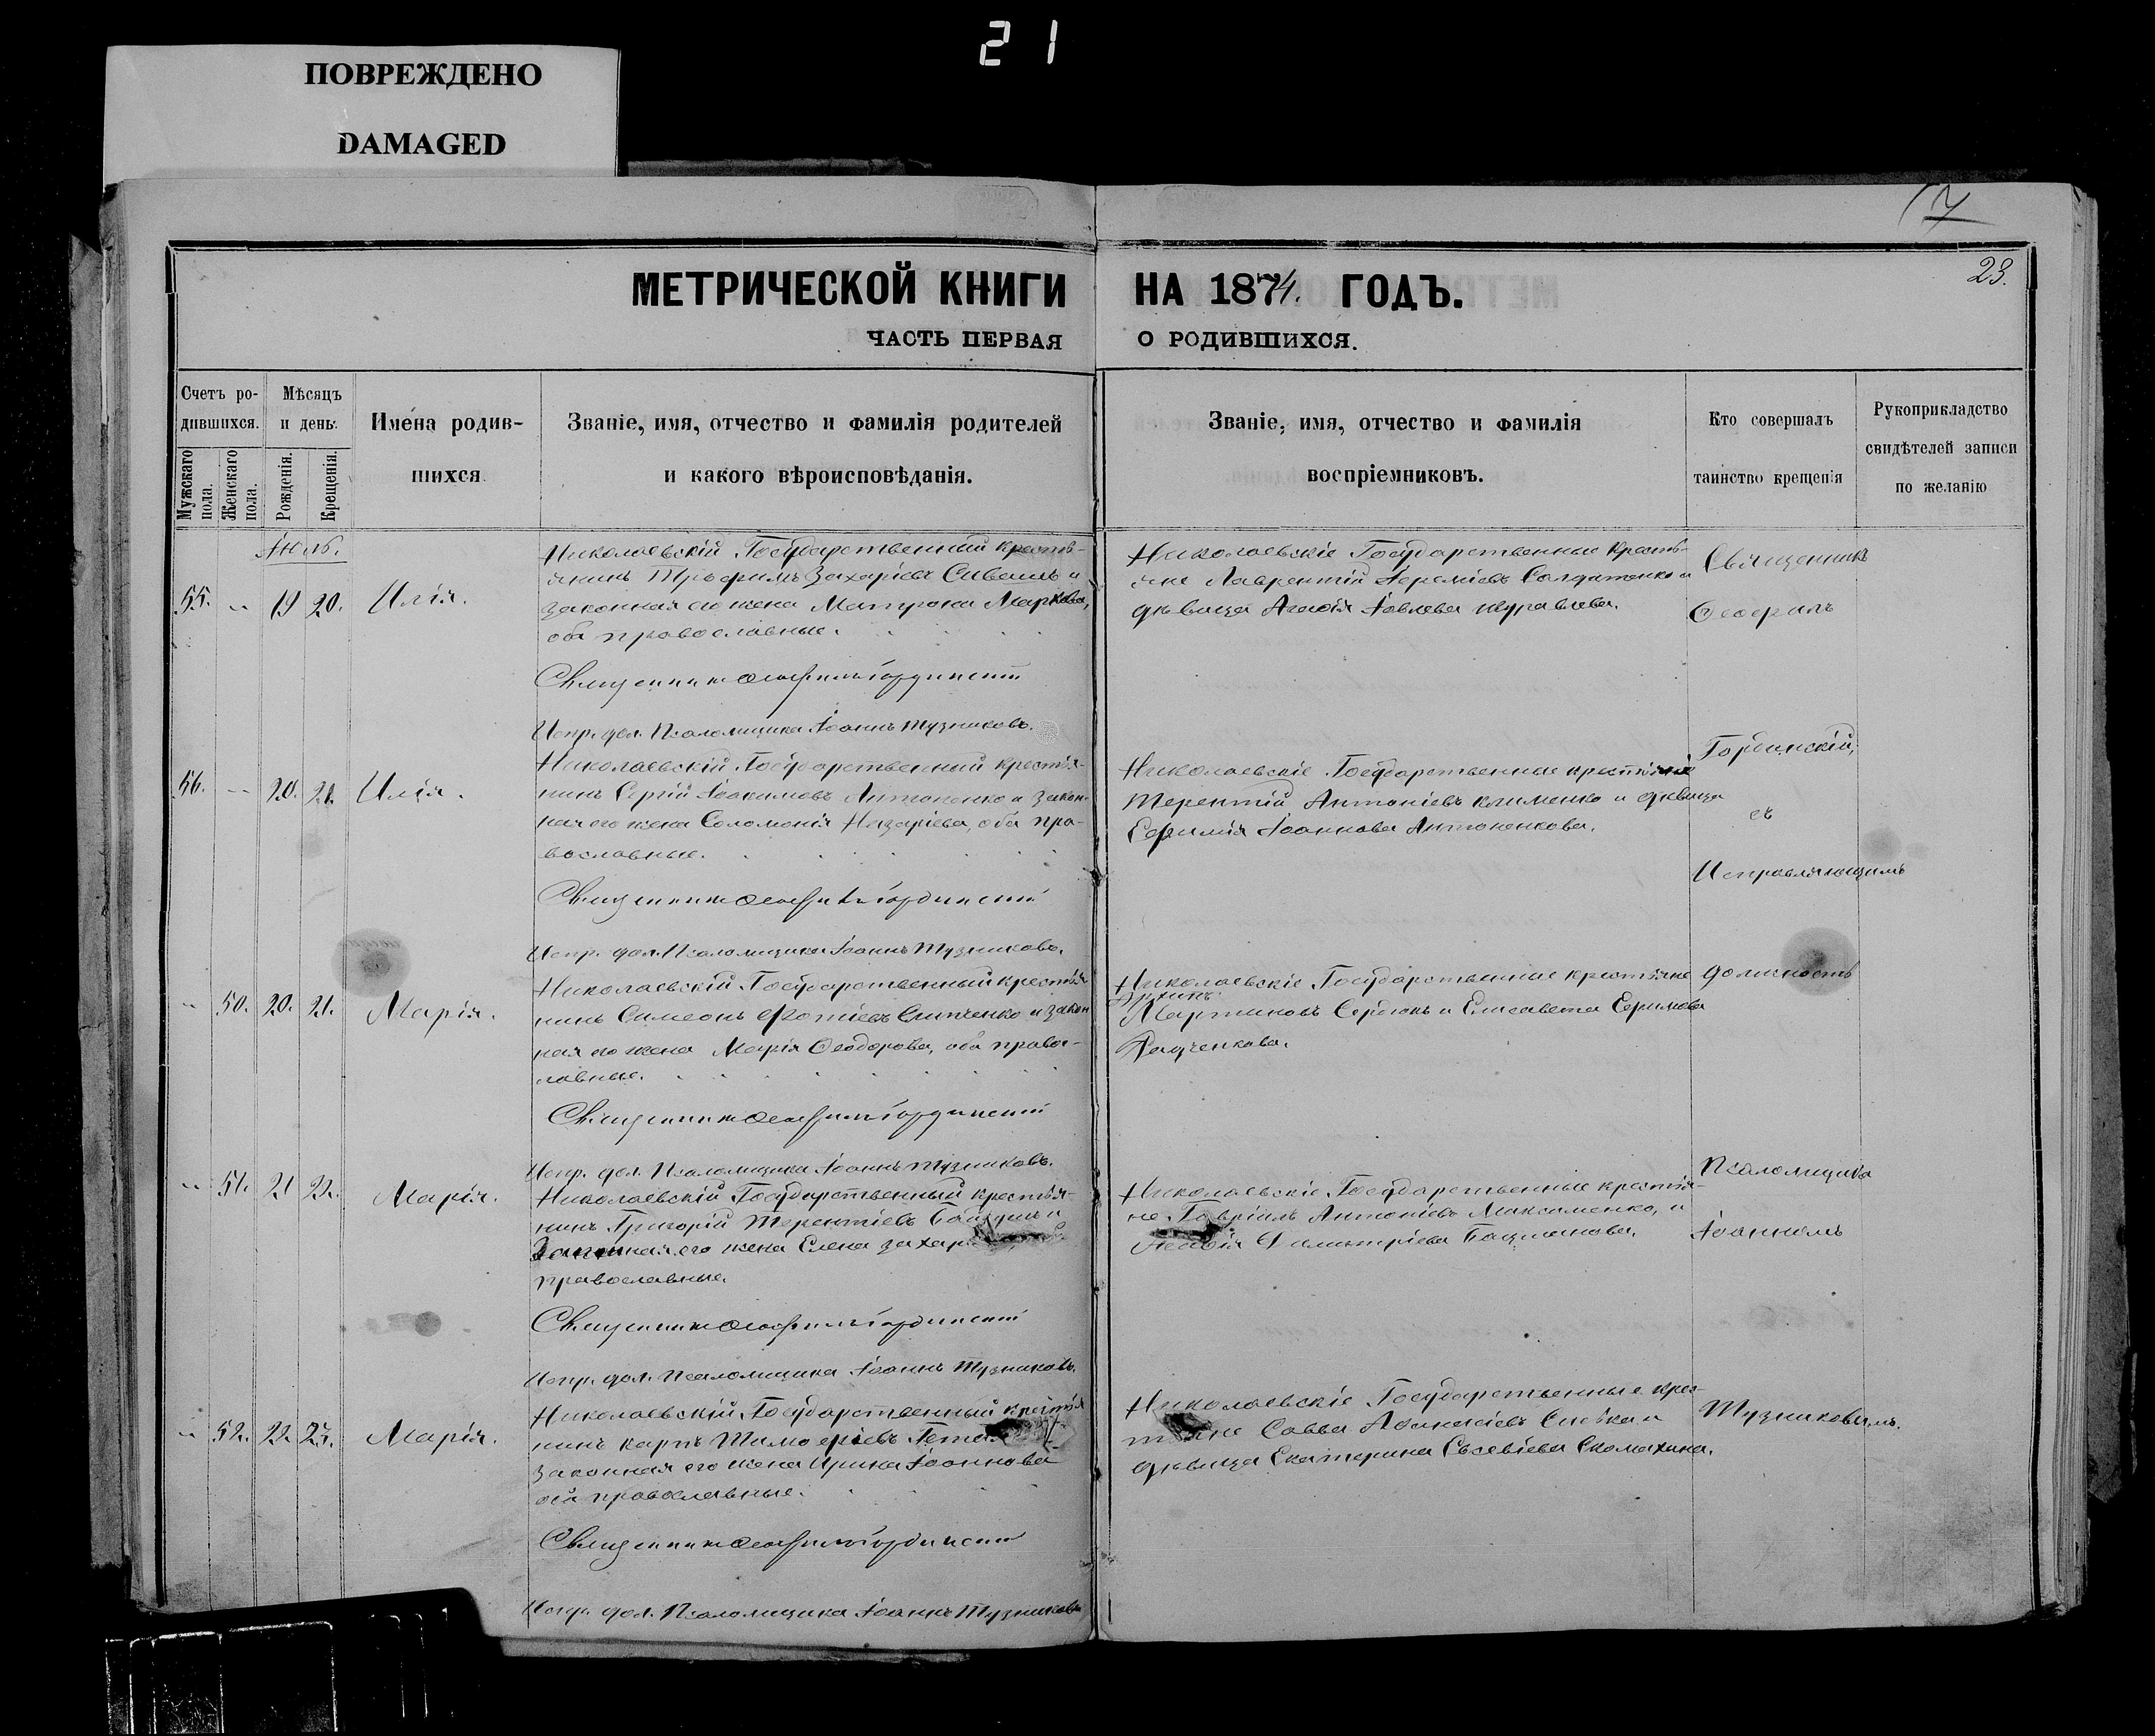 21
ПОВРЕЖДЕНО
DAMAGED
17
23.
МЕТРИЧЕСКОЙ КНИГИ НА 1874. ГОДЪ.
ЧАСТЬ ПЕРВАЯ О РОДИВШИХСЯ.
Счетъ ро-
дившихся.
Мужскаго пола.
Женскаго пола.
Мѣсяцъ
и день.
Рожденія.
Крещенія.
Имена родив-
шихся
Званіе, имя, отчество и фамилія родителей
и какого вѣроисповѣданія.
Званіе, имя, отчество и фамилія
воспріемниковъ.
Кто совершалъ
таинство крещенія
Рукоприкладство
свидѣтелей записи
по желанію
Іюль.
55. 19 20. Илія.
Николаевскій Государственный кресть-
янинъ Трофимъ Захаріевъ и
законная его жена Матрона Маркова,
оба православные.
Священникъ Ѳеофилъ Гординскій
Испр. дол. Псаломщика Іоаннъ Тузниковъ.
Николаевскіе Государственные кресть-
яне Лаврентій Іереміевъ Солдатенко и
дѣвица Агафія Іовлева Журавлева.
56. 20. 21. Илія.
Николаевскій Государственный крестья-
нинъ Сергій Іоакимовъ Антоненко и закон-
ная его жена Соломонія Назаріева, оба пра-
вославные.
Священникъ Ѳеофилъ Гординскій
Испр. дол. Псаломщика Іоаннъ Тузниковъ.
Николаевскіе Государственные крестьяне
Терентій Антоніевъ Клименко и дѣвица
Евфимія Іоаннова Антоненкова.
50. 20. 21. Марія.
Николаевскій Государственный крестья
нинъ Симеонъ Фотіевъ и закон
ная его жена Марія Ѳеодорова, оба правос-
лавные.
Священникъ Ѳеофилъ Гординскій
Испр. дол. Псаломщика Іоаннъ Тузниковъ.
Николаевскіе Государственные крестьяне
Мартиновъ Сердюкъ и Елисавета Ефимова
51. 21 22. Марія.
Николаевскій Государственный крестья-
нинъ Григорій Терентіевъ и
Законная его жена Елена
православные.
Священникъ Ѳеофилъ Гординскій
Испр. дол. Псаломщика Іоаннъ Тузниковъ.
Николаевскіе Государственные крестья-
не Гавріилъ Антоніевъ Максименко, и
Димитріева
52. 22. 23. Марія.
Николаевскій Государственный крестья
нинъ Карпъ Тимофеевъ
законная его жена Ирина Іоаннова
оба православные.
Священникъ Ѳеофилъ Гординскій
Испр. дол. Псаломщика Іоаннъ Тузниковъ
Николаевскіе Государственные крес-
тьяне Савва Аѳанасіевъ и
дѣвица Екатерина Евсевіева
Священникъ
Ѳеофилъ
Гординскій,
съ
Исправляющимъ
должность
Псаломщика
Іоанномъ
Тузниковымъ.